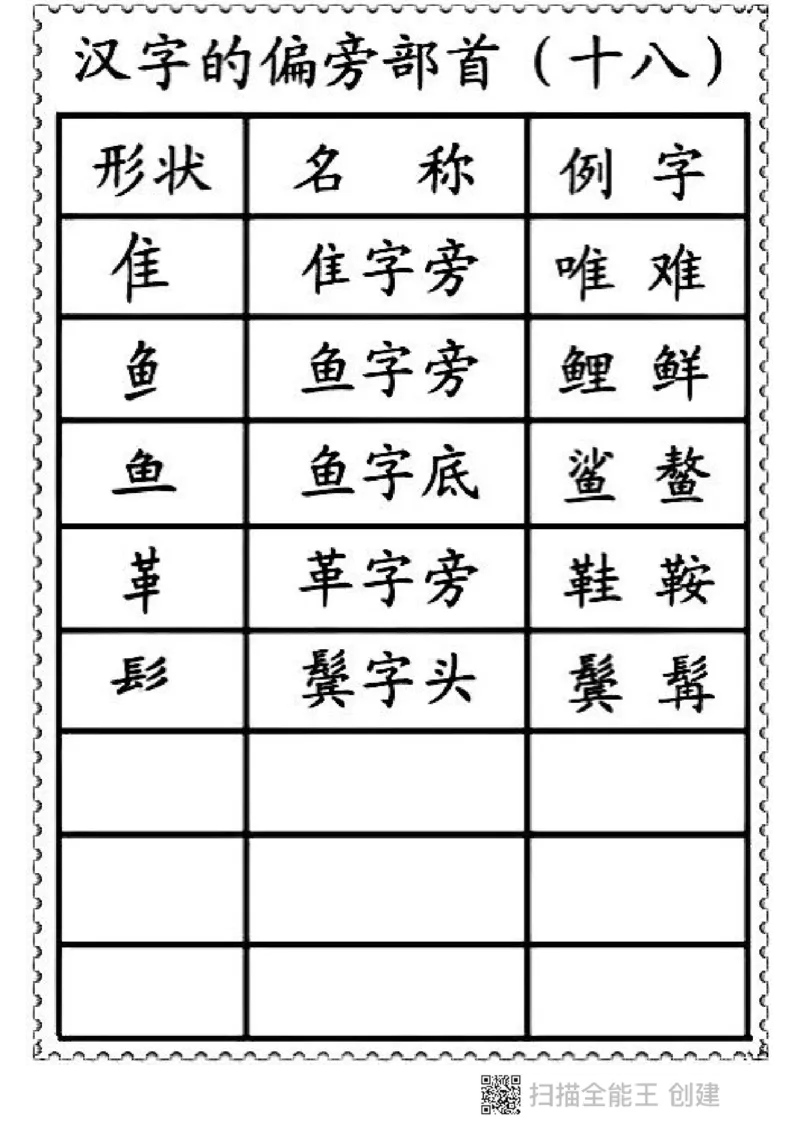 汉字的偏旁部首（十八）
形状 名 称 例 字
隹 隹字旁 唯 难
鱼 鱼字旁 鲤 鲜
鱼 鱼字底 鲨 鳌
革 革字旁 鞋 鞍
髟 鬓字头 鬓 髯
扫描全能王 创建